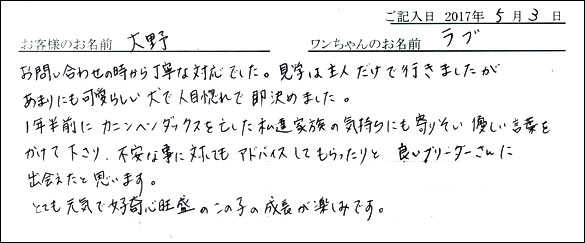 ご記入日 2017年 5月 3日
お客様のお名前 大野 ワンちゃんのお名前 ラブ
お問い合わせの時から丁寧な対応でした。見学は主人だけで行きましたが
あまりにも可愛らしい犬で人目惚れで即決めました。
1年半前にカニンヘンダックスを亡した私達家族の気持ちにも寄りそい優しい言葉を
かけて下さり、不安な事に対してもアドバイスしてもらったりと良いブリーダーさんに
出会えたと思います。
とても元気で好奇心旺盛のこの子の成長が楽しみです。